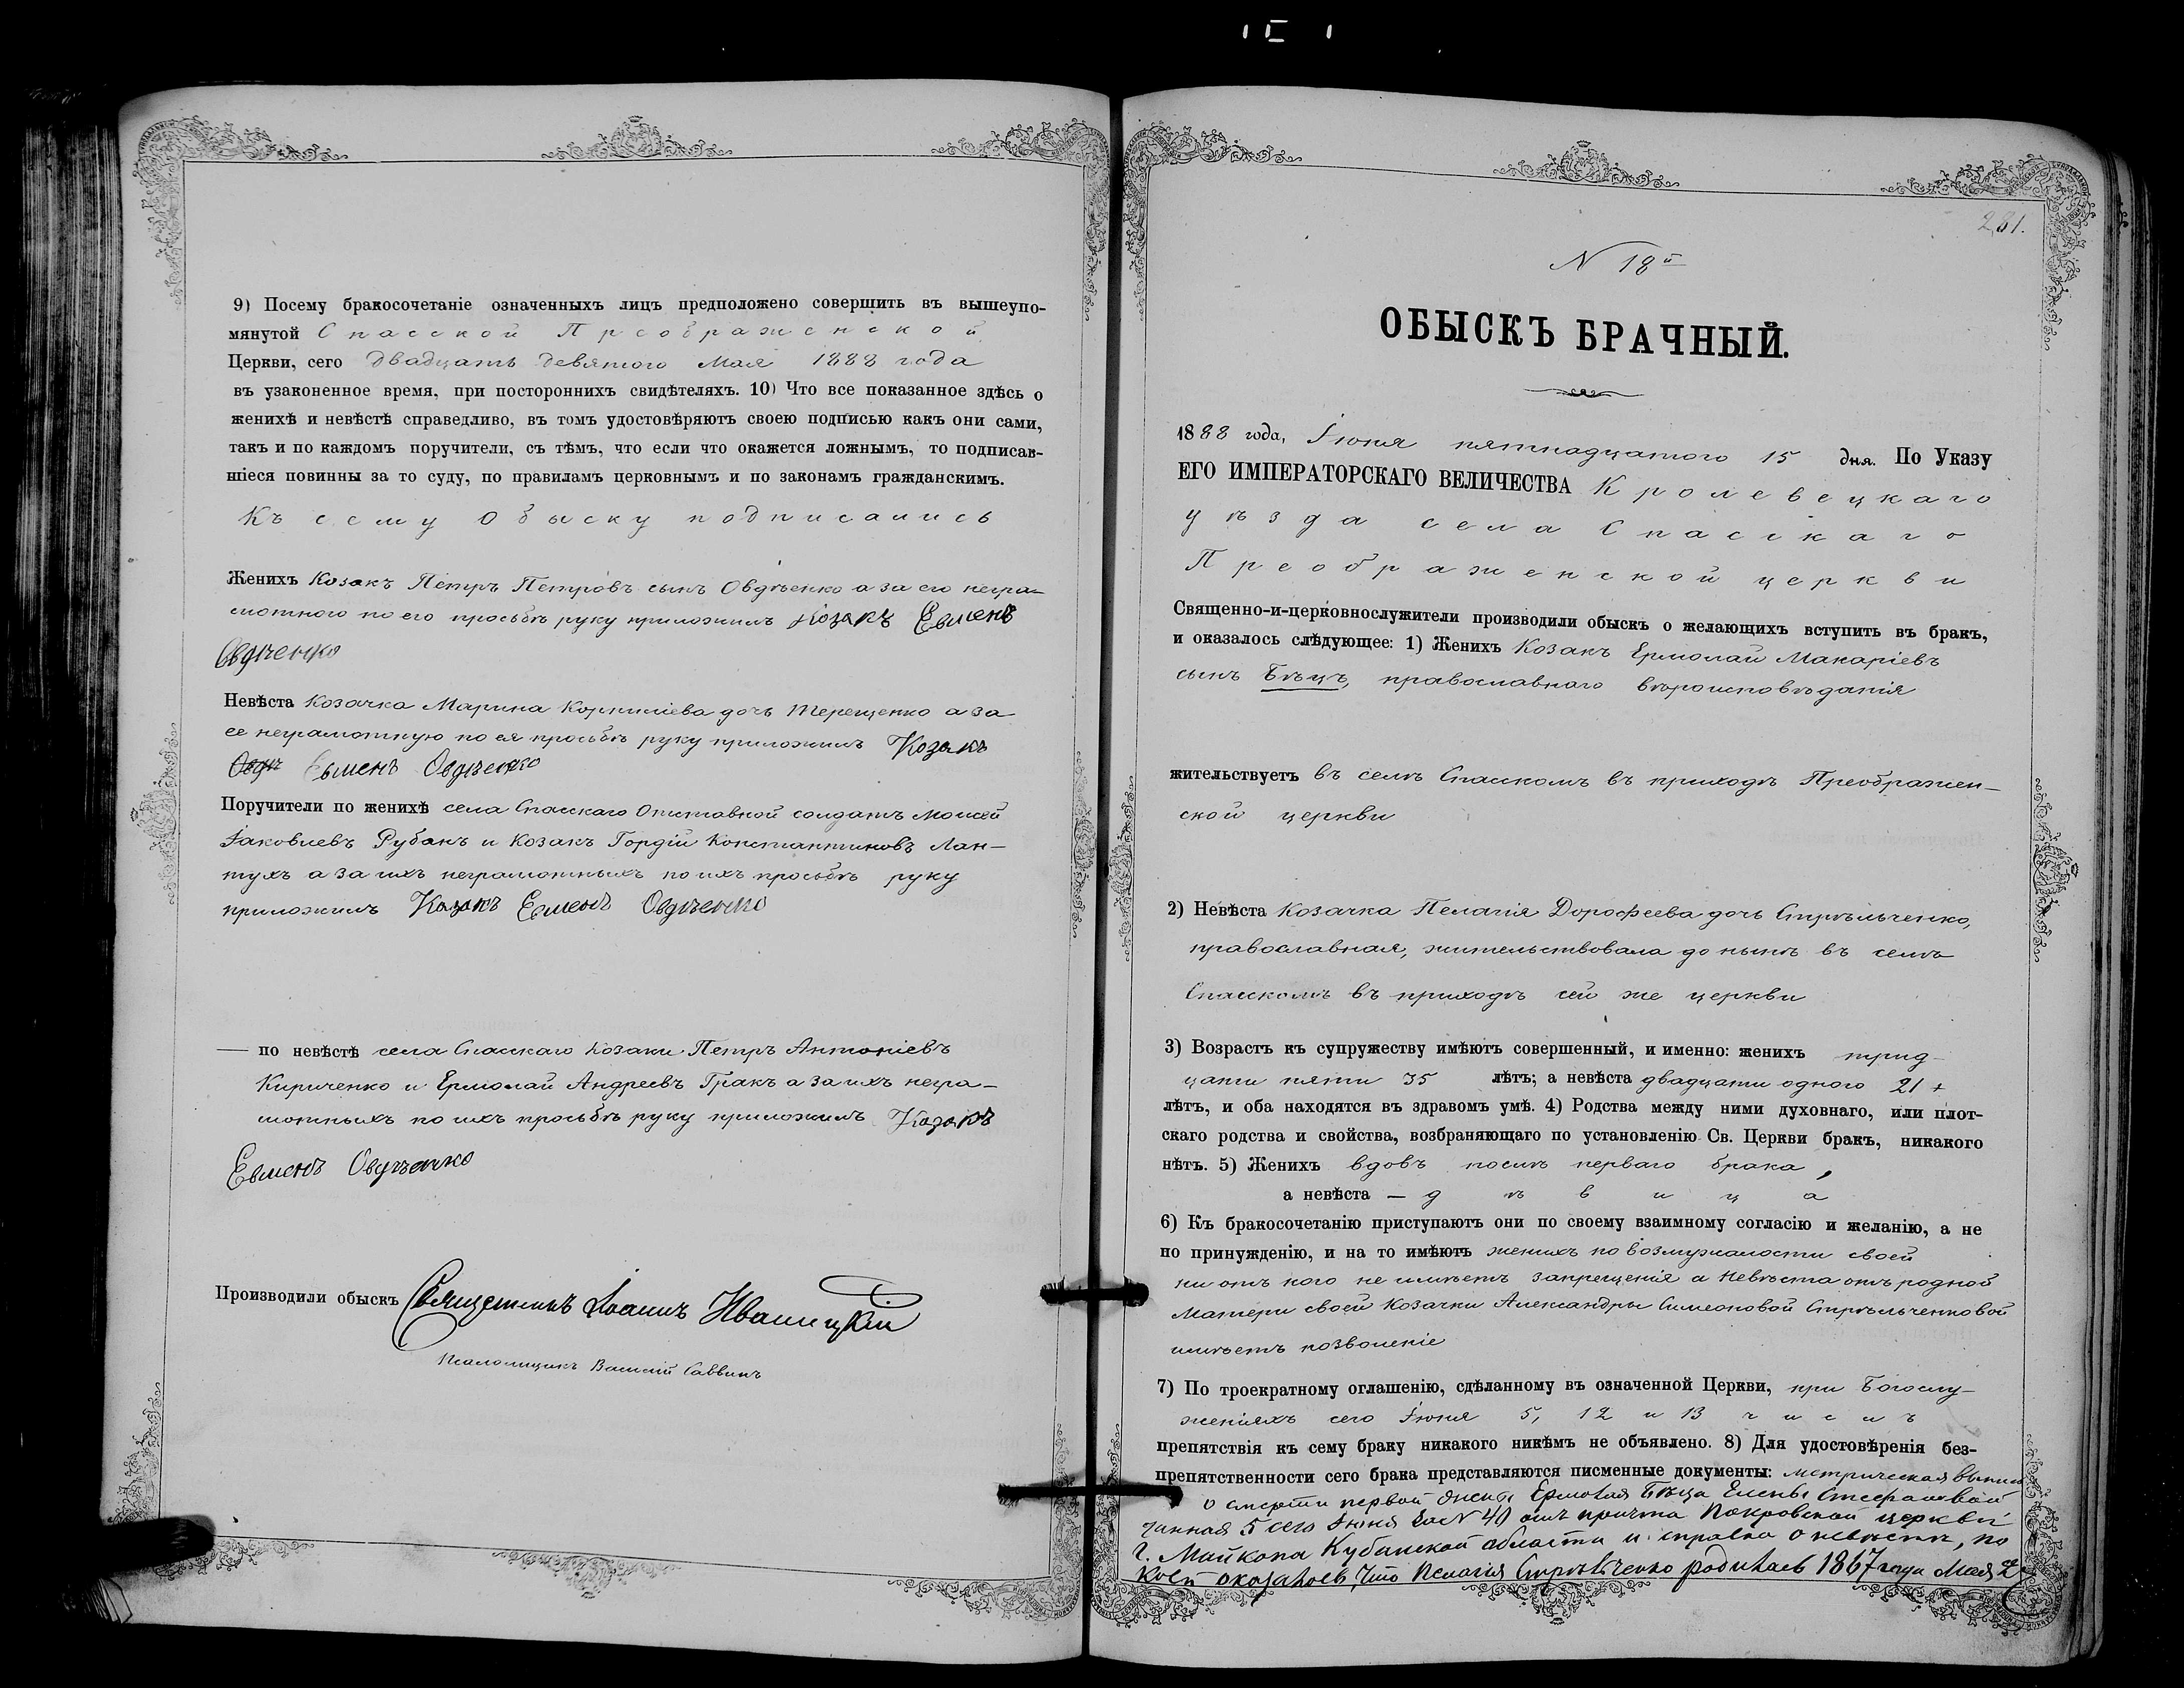 9) Посему бракосочетаніе означенныхъ лицъ предположено совершить въ вышеупо-
мянутой Спасской Преображенской
Церкви, сего двадцать девятого Мая 1888 года
въ узаконенное время, при постороннихъ свидѣтеляхъ. 10) Что все показанное здѣсь о
женихѣ и невѣстѣ справедливо, въ томъ удостовѣряютъ своею подписью какъ они сами,
такъ и по каждомъ поручители, съ тѣмъ, что если что окажется ложнымъ, то подписав-
шіеся повинны за то суду, по правиламъ церковнымъ и по законамъ гражданскимъ.
Къ сему обыску подписались
Женихъ Козакъ Петръ Петровъ сынъ Овдѣенко а за его негра-
мотного по его просьбѣ руку приложилъ Козакъ Евменъ
Овдѣенко
Невѣста Козачка Марина Корнилиева дочь Терещенко а за
ее неграмотную по ея просьбѣ руку приложилъ Козакъ
Овдѣ Евменъ Овдѣенко
Поручители по женихѣ села Спасскаго Отставной солдатъ Моисей
Іаковлевъ Рубанъ и Козакъ Гордій Константиновъ Лан-
тухъ а за ихъ неграмотныхъ по ихъ просьбѣ руку
приложилъ Казакъ Евменъ Овдѣенко
— по невѣстѣ села Спасскаго Козаки Петръ Антоніевъ
Кириченко и Ермолай Андреевъ Гракъ а за ихъ негра-
мотныхъ по ихъ просьбѣ руку приложилъ Казакъ
Евменъ Овдѣенко
Производили обыскъ Священникъ Іоаннъ Иваницкій
Псаломщикъ Василій Саввинъ
281.
N 18й
ОБЫСКЪ БРАЧНЫЙ.
1888 года, Іюня пятнадцатого 15 дня. По Указу
ЕГО ИМПЕРАТОРСКАГО ВЕЛИЧЕСТВА Кролевецкаго
уѣзда села Спасскаго
Преображенской церкви
Священно-и-церковнослужители производили обыскъ о желающихъ вступить въ бракъ,
и оказалось слѣдующее: 1) Женихъ Козакъ Ермолай Макаріевъ
сынъ Бѣцъ, православнаго вѣроисповѣданія
жительствуетъ въ селѣ Спасскомъ въ приходѣ Преображен-
ской церкви
2) Невѣста Козачка Пелагія Дорофеева дочь Стрѣльченко,
православная, жительствовала до нынѣ въ селѣ
Спасскомъ въ приходѣ сей же церкви
3) Возрастъ къ супружеству имѣютъ совершенный, и именно: женихъ трид-
цати пяти 35 лѣтъ; а невѣста двадцати одного 21
лѣтъ, и оба находятся въ здравомъ умѣ. 4) Родства между ними духовнаго, или плот-
скаго родства и свойства, возбраняющаго по установленію Св. Церкви бракъ, никакого
нѣтъ. 5) Женихъ вдовъ послѣ перваго брака,
а невѣста — дѣвица
6) Къ бракосочетанію приступаютъ они по своему взаимному согласію и желанію, а не
по принужденію, и на то имѣютъ женихъ по возмужалости своей
ни отъ кого не имѣетъ запрещенія а невѣста отъ родной
Матери своей Козачки Александры Симеоновой Стрѣльченковой
имѣетъ позволеніе
7) По троекратному оглашенію, сдѣланному въ означенной Церкви, при Богослу-
женіяхъ сего Іюня 5, 12 и 13 числъ
препятствія къ сему браку никакого никѣмъ не объявлено. 8) Для удостовѣренія без-
препятственности сего брака представляются писменные документы: метрическая выпись
о смерти первой жены Ермолая Бѣца Елены Стефановой
данная 5 сего Іюня за N 40 отъ причта Покровской церкви
г. Майкопа Кубанской области и справка о невѣстѣ, по
коей оказалось, что Пелагія Стрѣльченко родилась 1867 года Мая 2